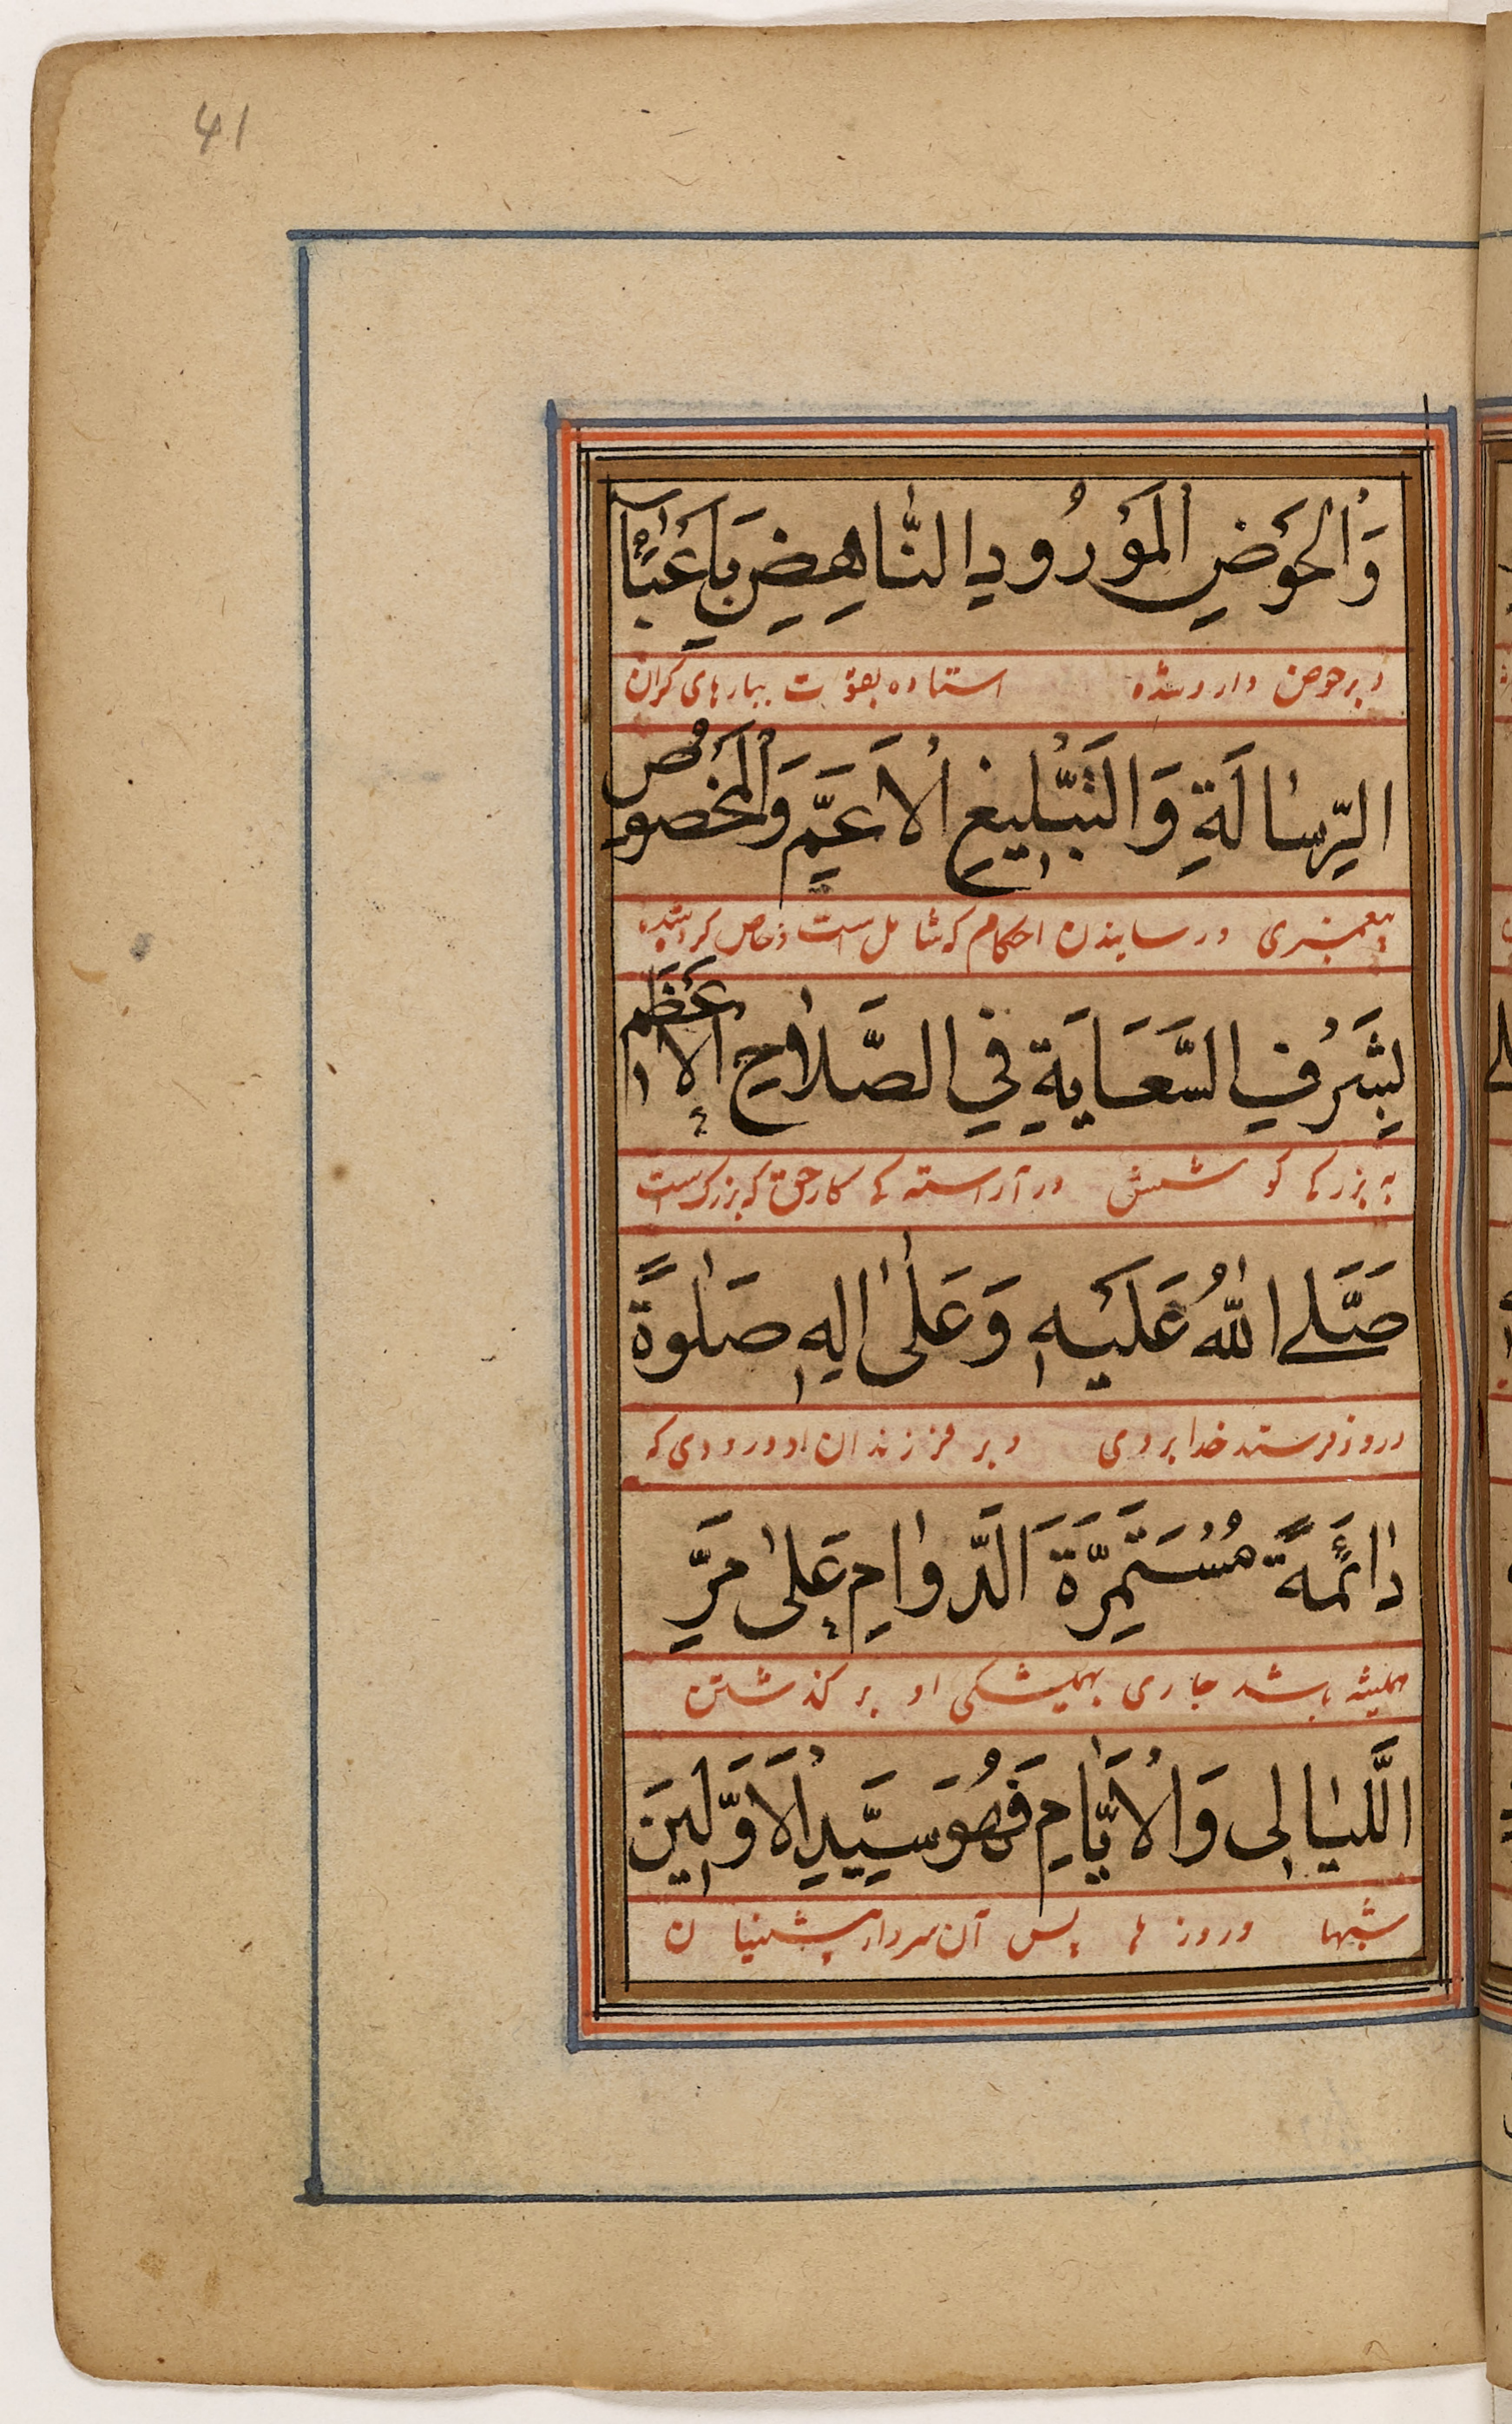 41
وَالْحَوْضِ الْمَوْرُودِ النَّاهِضِ بِاَعْبَآءِ
و بر حوض وارد شده استاده بقوت ببارهای کران
الرِّسَالَةِ وَالتَّبْلِيغِ الْاَعَمِّ وَالْمَخْصُوصِ
پیغمبری و رسانیدن احکام که شامل است و خاص
بِشَرَفِ السَّعَايَةِ فِي الصَّلَاحِ الْاَعْظَمِ
به بزرکی کوشش در آراستکی کار حق که بزرک است
صَلَّى اللّٰهُ عَلَيْهِ وَعَلٰى اٰلِهِ صَلٰوةً
درود فرستد خدا بر وی و بر فرزندان او درودی که
دَائِمَةً مُسْتَمِرَّةَ الدَّوَامِ عَلٰى مَرِّ
همیشه باشد جاری همیشکی او بر کذشتن
اللَّيَالِى وَالْاَيَّامِ فَهُوَ سَيِّدِ الْاَوَّلِينَ
شبها و روز ها پس آن سردار پیشینیان